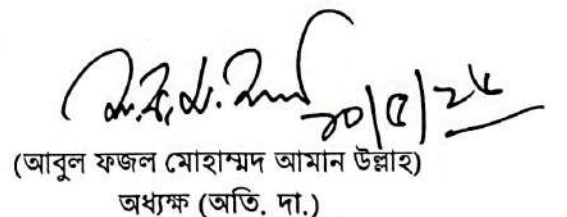 ২০/৫/২৫
(আবুল ফজল মোহাম্মদ আমান উল্লাহ)
অধ্যক্ষ (অতি. দা.)